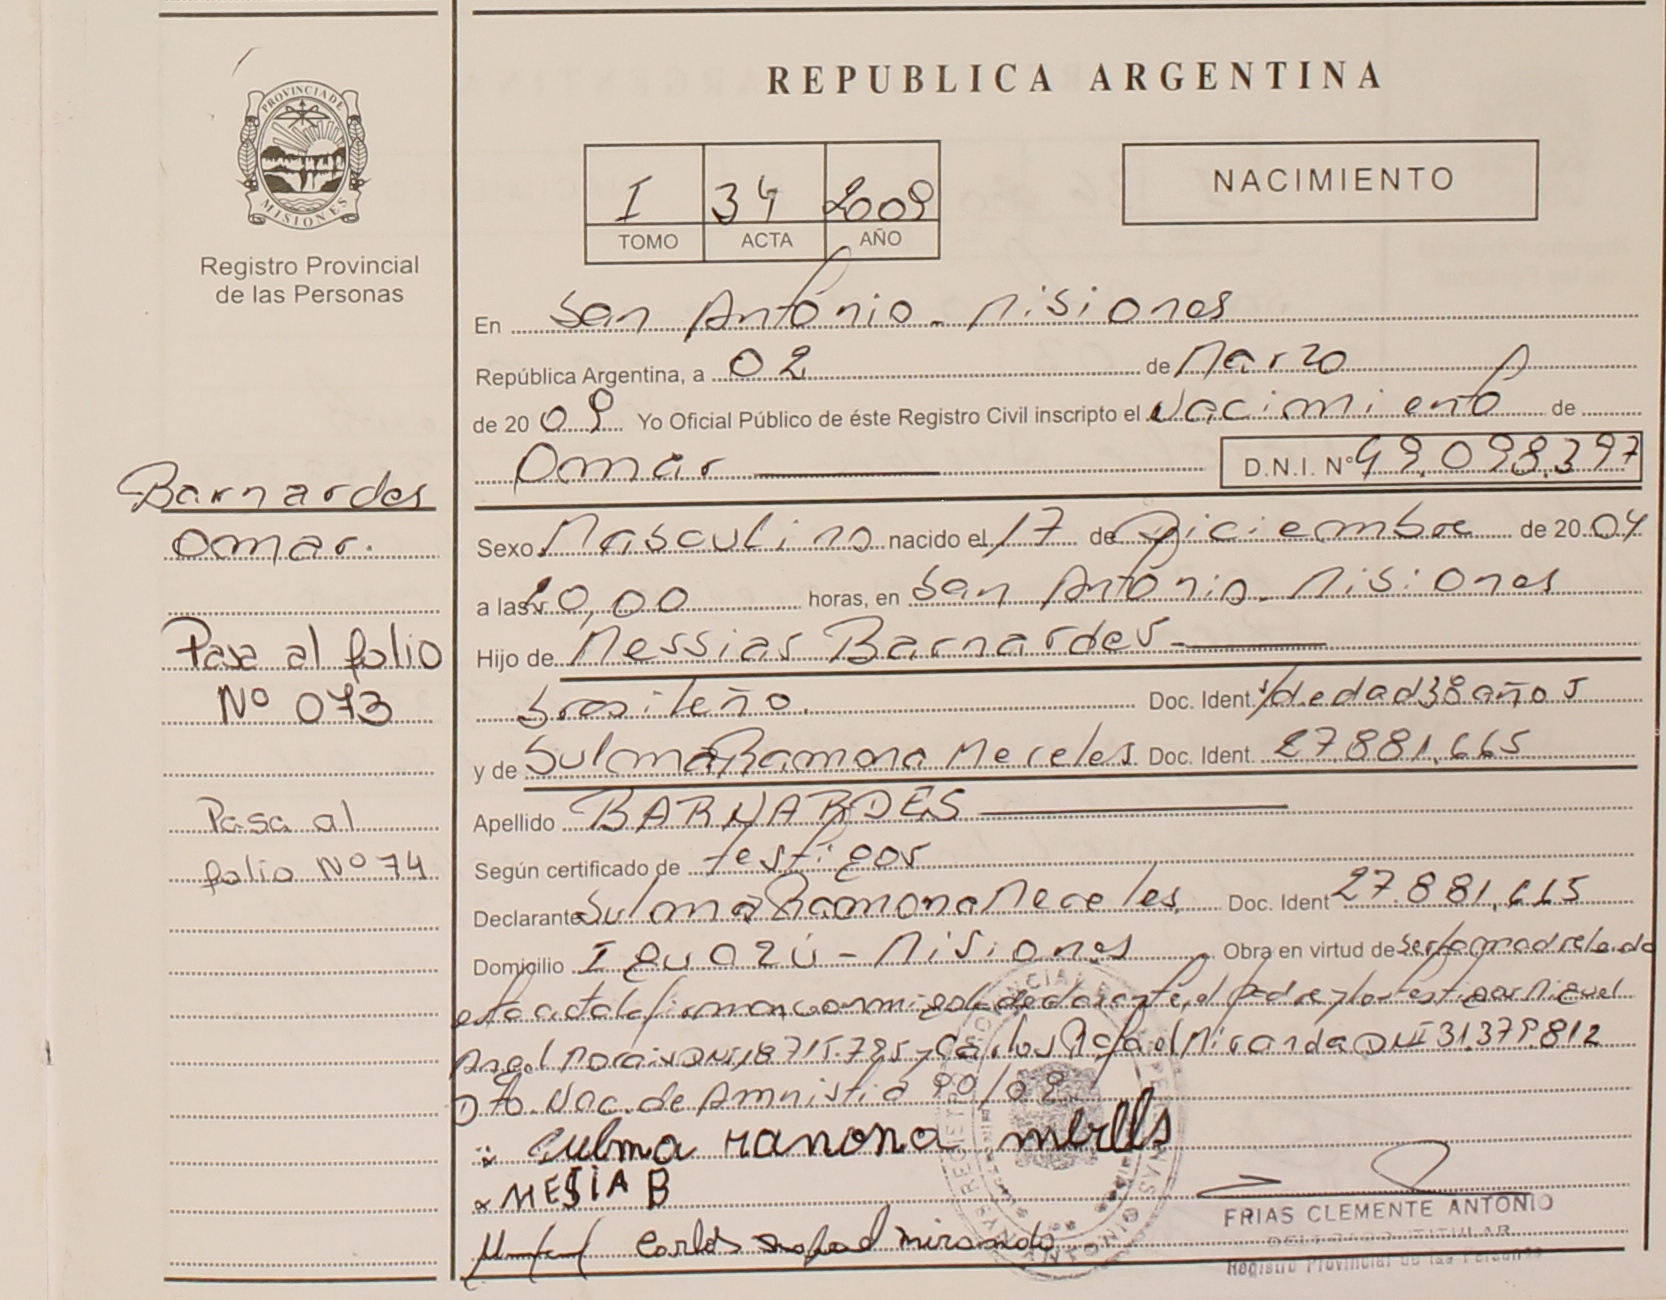 PROVINCIA DE
MISIONES
Registro Provincial
de las Personas
Barnardes
Omar.
Pasa al folio
Nº 073
Pasa al
folio Nº 74
REPUBLICA ARGENTINA
I 34 2009
TOMO ACTA AÑO
NACIMIENTO
En San Antonio - Misiones
República Argentina, a 02 de Marzo
de 2009 Yo Oficial Público de éste Registro Civil inscripto el Nacimiento de
Omar D.N.I. Nº 49.098.397
Sexo Masculino nacido el 17 de Diciembre de 2004
a las 20,00 horas, en San Antonio - Misiones
Hijo de Messias Barnardes
brasileño. Doc. Ident. de edad 38 años
y de Sulma Ramona Meceles Doc. Ident. 27.881.665
Apellido BARNARDES
Según certificado de testigos
Declarante Sulma Ramona Meceles Doc. Ident 27.881.665
Domicilio Iguazú - Misiones Obra en virtud de ser la madre leida
esta acta la firman conmigo la declarante, el padre y los testigos Miguel
Angel Morais DNI 18.715.785 y Carlos Rafael Miranda DNI 31.379.812
Nac. de Amnistia 90/09
Sulma ramona
MESIA B
Carlos Rafael miranda
FRIAS CLEMENTE ANTONIO
DELEGADO TITULAR
Registro Provincial de las Personas